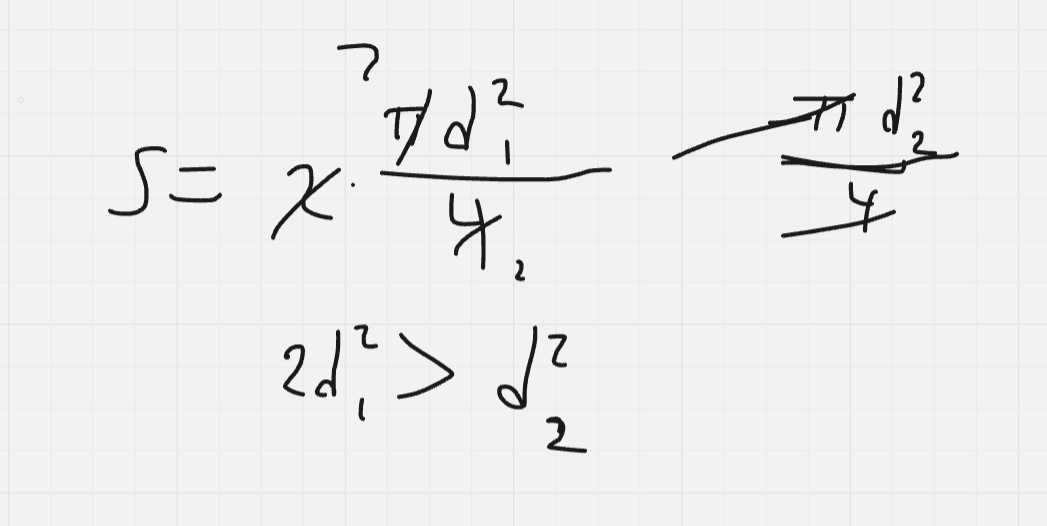 ?
S = 2 · πd₁²/4₂ πd₂²/4
2d₁² > d₂²